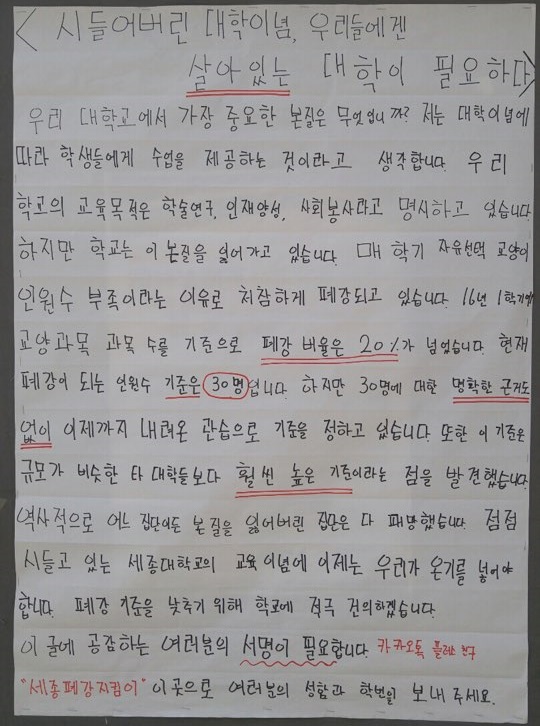 < 시들어버린 대학이념, 우리들에겐
살아있는 대학이 필요하다>
우리 대학교에서 가장 중요한 본질은 무엇입니까? 저는 대학이념에
따라 학생들에게 수업을 제공하는 것이라고 생각합니다. 우리
학교의 교육목적은 학술연구, 인재양성, 사회봉사라고 명시하고 있습니다.
하지만 학교는 이 본질을 잃어가고 있습니다. 매 학기 자유선택 교양이
인원수 부족이라는 이유로 처참하게 폐강되고 있습니다. 16년 1학기에
교양과목 과목 수를 기준으로 폐강 비율은 20%가 넘었습니다. 현재
폐강이 되는 인원수 기준은 30명입니다. 하지만 30명에 대한 명확한 근거도
없이 이제까지 내려온 관습으로 기준을 정하고 있습니다. 또한 이 기준은
규모가 비슷한 타 대학들보다 훨씬 높은 기준이라는 점을 발견했습니다.
역사적으로 어느 집단이든 본질을 잃어버린 집단은 다 패망했습니다. 점점
시들고 있는 세종대학교의 교육이념에 이제는 우리가 온기를 넣어야
합니다. 폐강 기준을 낮추기 위해 학교에 적극 건의하겠습니다.
이 글에 공감하는 여러분의 서명이 필요합니다. 카카오톡 플러스 친구
"세종폐강지킴이" 이곳으로 여러분의 성함과 학번을 보내 주세요.